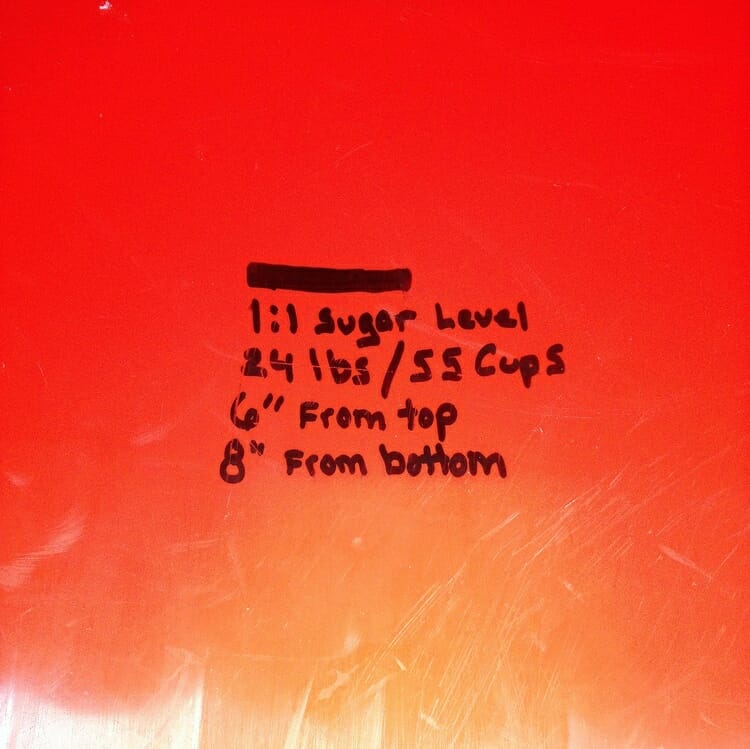 1:1 Sugar Level
24 lbs / 55 Cups
6" From top
8" From bottom